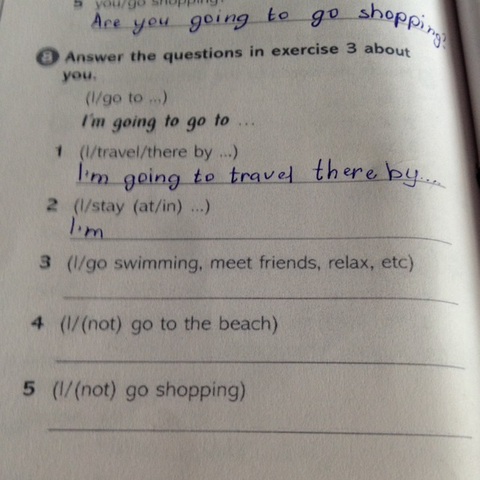 5 you/go shopping?
Are you going to go shopping?
8 Answer the questions in exercise 3 about
you.
(I/go to ...)
I'm going to go to ...
1 (I/travel/there by ...)
I'm going to travel there by...
2 (I/stay (at/in) ...)
I'm
3 (I/go swimming, meet friends, relax, etc)
4 (I/(not) go to the beach)
5 (I/(not) go shopping)